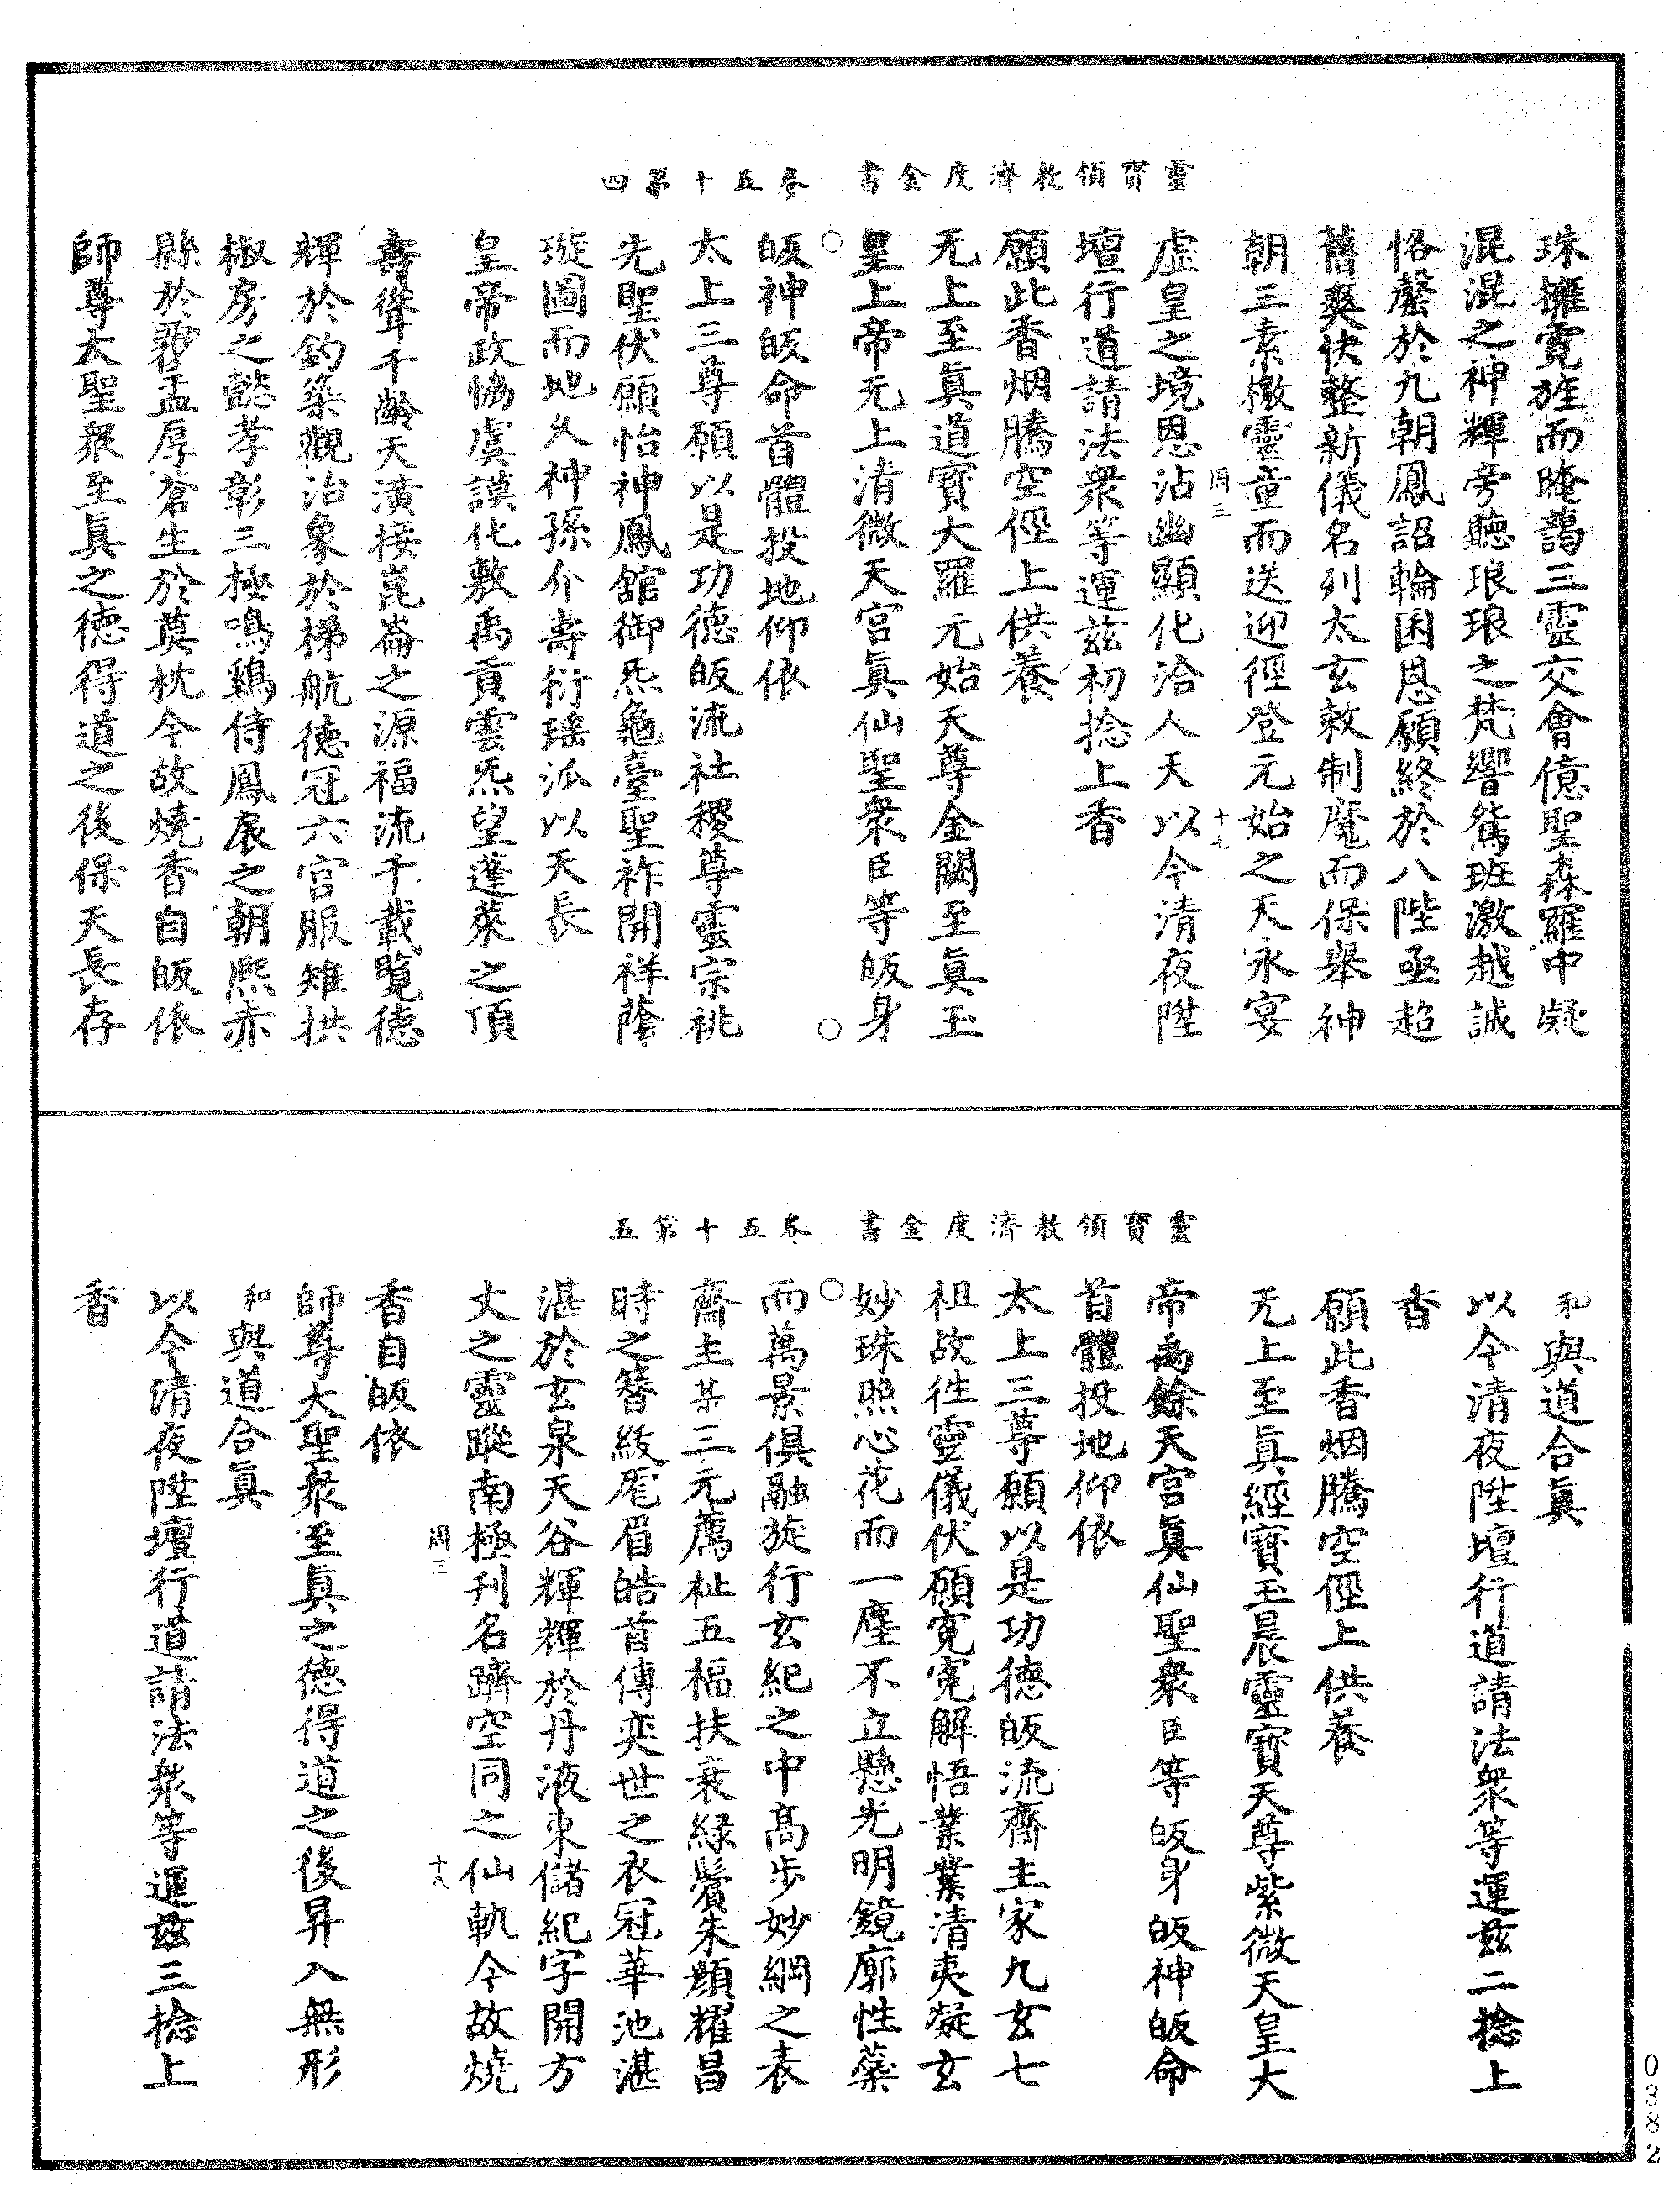 靈寶領教濟度金書 卷五十 第四
珠擁霓旌而晻藹三靈交會億聖森羅中凝
混混之神輝旁聽琅琅之梵響鴛班激越誠
恪罄於九朝鳳詔輪囷恩願終於八陛亟超
舊爽快整新儀名列太玄敕制魔而保舉神
朝三素檄靈童而送迎徑登元始之天永宴
周三 十七
虛皇之境恩沾幽顯化洽人天以今清夜陞
壇行道請法衆等運兹初捻上香
願此香烟騰空徑上供養
无上至眞道寳大羅元始天尊金闕至眞玉
皇上帝无上清微天宫眞仙聖衆臣等皈身
○ ○
皈神皈命首體投地仰依
太上三尊願以是功德皈流社稷尊靈宗祧
先聖伏願怡神鳳舘御炁龜臺聖祚開祥蔭
璇圖而地久神孫介壽衍瑶派以天長
皇帝政恊虞謨化敷禹貢雲炁望蓬萊之頂
壽聳千齡天潢接崑崙之源福流千載覽德
輝於釣築觀治象於梯航德冠六宫服雉拱
椒房之懿孝彰三極鳴鷄侍鳳扆之朝熙赤
縣於盂厚蒼生於奠枕今故燒香自皈依
師尊大聖衆至眞之德得道之後保天長存
靈寶領教濟度金書 卷五十 第五
和與道合眞
以今清夜陞壇行道請法衆等運兹二捻上
香
願此香烟騰空徑上供養
无上至眞經寳玉晨靈寳天尊紫微天皇大
帝禹餘天宫眞仙聖衆臣等皈身皈神皈命
首體投地仰依
太上三尊願以是功德皈流齋主家九玄七
祖故徃靈儀伏願寃寃解悟業業清夷凝玄
妙珠照心花而一塵不立懸光明鏡廓性蘂
○
而萬景俱融旋行玄紀之中高步妙綱之表
齋主某三元薦祉五福扶衰緑鬢朱顔耀昌
時之簪紱厖眉皓首傳奕世之衣冠華池湛
湛於玄泉天谷輝輝於丹液東儲紀字開方
丈之靈蹤南極刊名躋空同之仙軌今故燒
周三 十八
香自皈依
師尊大聖衆至眞之德得道之後昇入無形
和與道合眞
以今清夜陞壇行道請法衆等運兹三捻上
香
0382